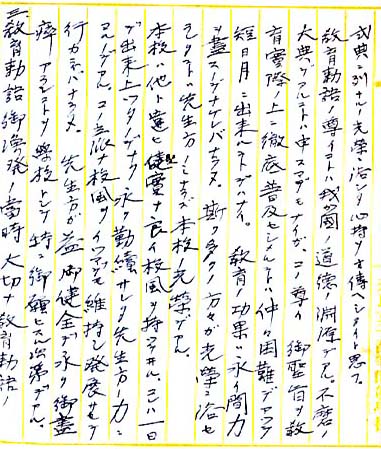 式典ニ列ナルノ光栄ニ浴シタ心持ヲオ傳ヘシタイト思フ。
教育勅語ノ尊イコトハ我ガ國ノ道徳ノ淵源デアル。不磨ノ
大典デアルコトハ申スマデモナイガ、コノ尊イ御聖旨ヲ教
育實際ノ上ニ徹底普及セシムルコトハ仲々困難デアッテ
短日月ニ出来ルコトデハナイ。教育ノ功果ハ永イ間力
ヲ盡スノデナケレバナラヌ。斯ク多クノ方々ガ光榮ニ浴セ
ラレタコトハ先生方ノミナラズ本校ノ光榮デアル。
本校ハ他ト違ヒ健實ナ良イ校風ヲ持ツテヰル。コレハ一日
デ出来上ツタノデナク永ク勤續サレタ先生方ノ力ニ
ヨルノデアル。コノ意味校風ヲイツマデモ維持シ發展サセテ
行カネバナラヌ。先生方ガ益御健全デ永ク御盡
瘁アランコトヲ學校トシテ特ニ御願ヒスル次第デアル。
三教育勅語御渙発ノ當時大切ナ教育勅語ノ